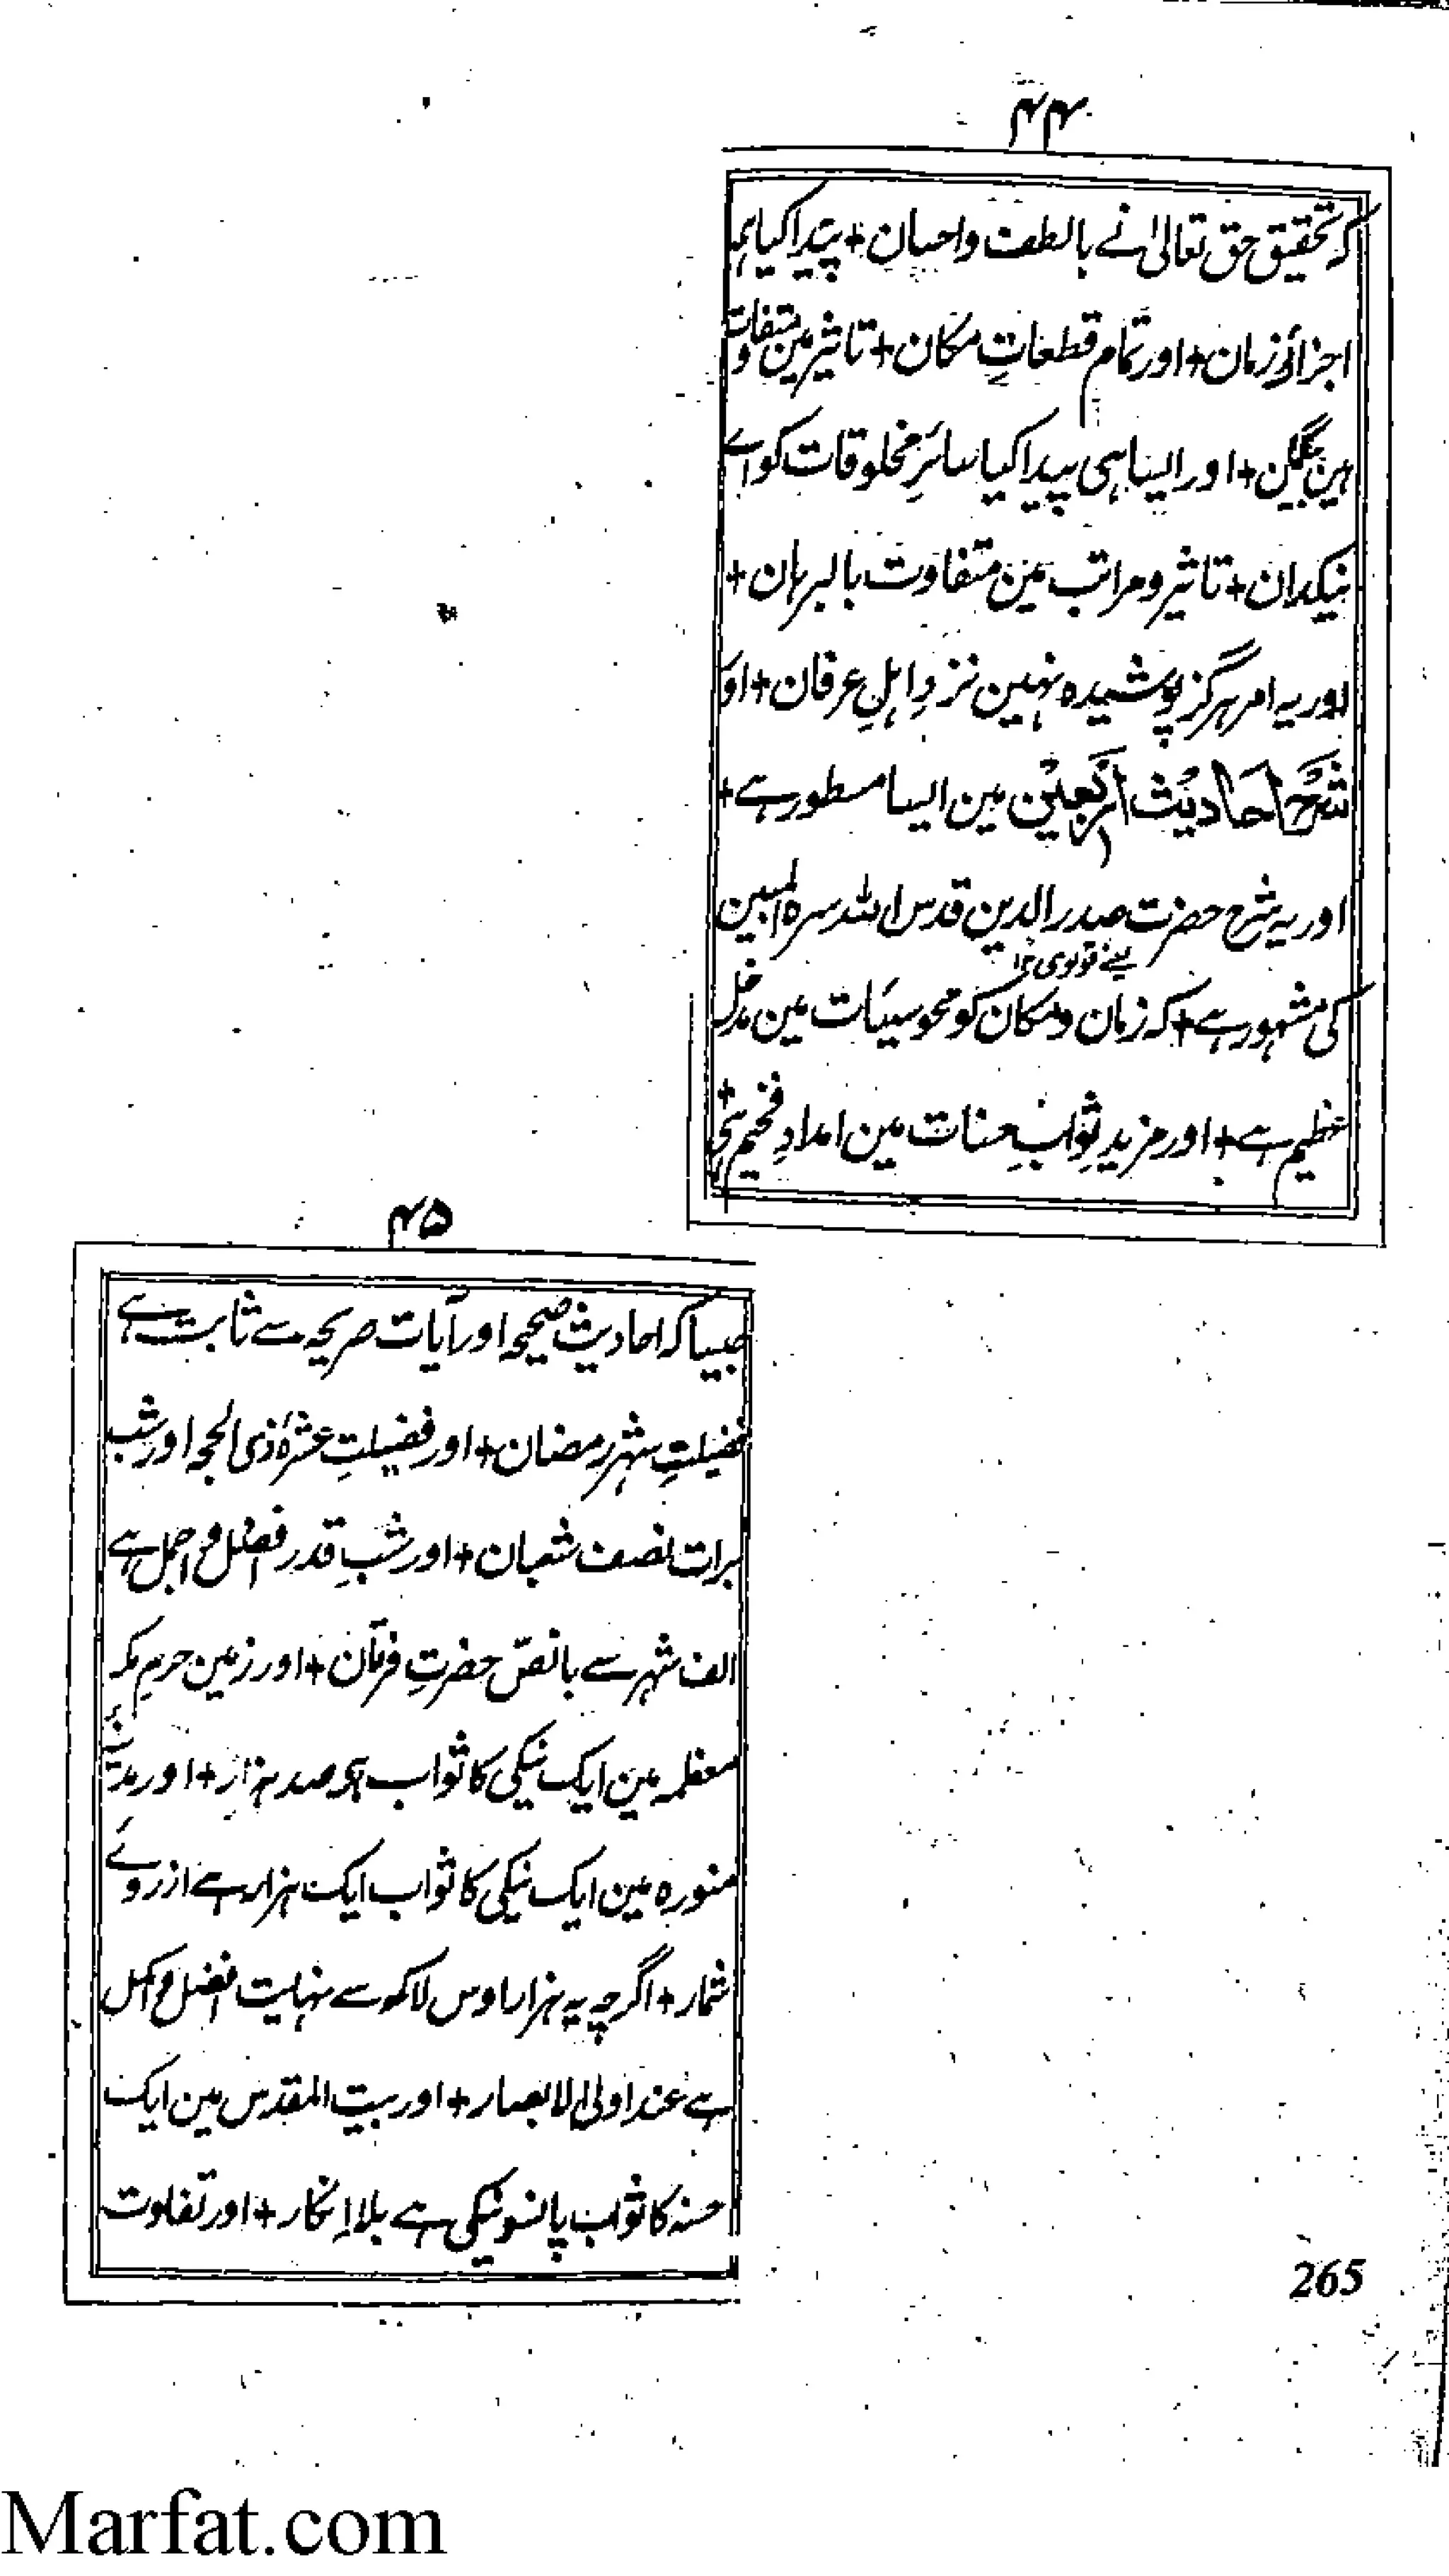 ۴۴
کہ تحقیق حق تعالیٰ نے بالطف واحسان + پیدا کیا ہم
اجزائے زمان + اور تمام قطعاتِ مکان + تاثیر مین متفاوت
ہین + اور ایسا ہی پیدا کیا سائرِ مخلوقات کو اے
نیکدان + تاثیر و مراتب مین متفاوت بالبرہان +
اور یہ امر ہرگز پوشیدہ نہین نزدِ اہلِ عرفان + اور
شَرْحِ اَحَادِیْث اَرْبَعِیْن مین ایسا مسطور ہے +
اور یہ شرح حضرت صدر الدین قدس اللہ سرہ المبین
یعنے قونوی ۱۲
کی مشہور ہے + کہ زمان و مکان کو محوسیئات مین مدخل
عظیم ہے + اور مزیدِ ثوابِ حسنات مین امدادِ فخیم ہی +
۴۵
جیسا کہ احادیث صحیحہ اور آیات صریحہ سے ثابت ہے
فضیلتِ شہر رمضان + اور فضیلتِ عشرۂ ذی الحجہ اور شب
برات نصف شعبان + اور شبِ قدر افضل و اجمل ہے
الف شہر سے بانصّ حضرتِ فرقان + اور زمین حرم مکہ
معظمہ مین ایک نیکی کا ثواب ہی صد ہزار + اور مدینۂ
منورہ مین ایک نیکی کا ثواب ایک ہزار ہے از روئے
شمار + اگرچہ یہ ہزار اوس لاکھ سے نہایت افضل و اکمل
ہے عند اولی الابصار + اور بیت المقدس مین ایک
حسنہ کا ثواب پانسو نیکی ہے بلا انکار + اور تفاوت
265
Marfat.com